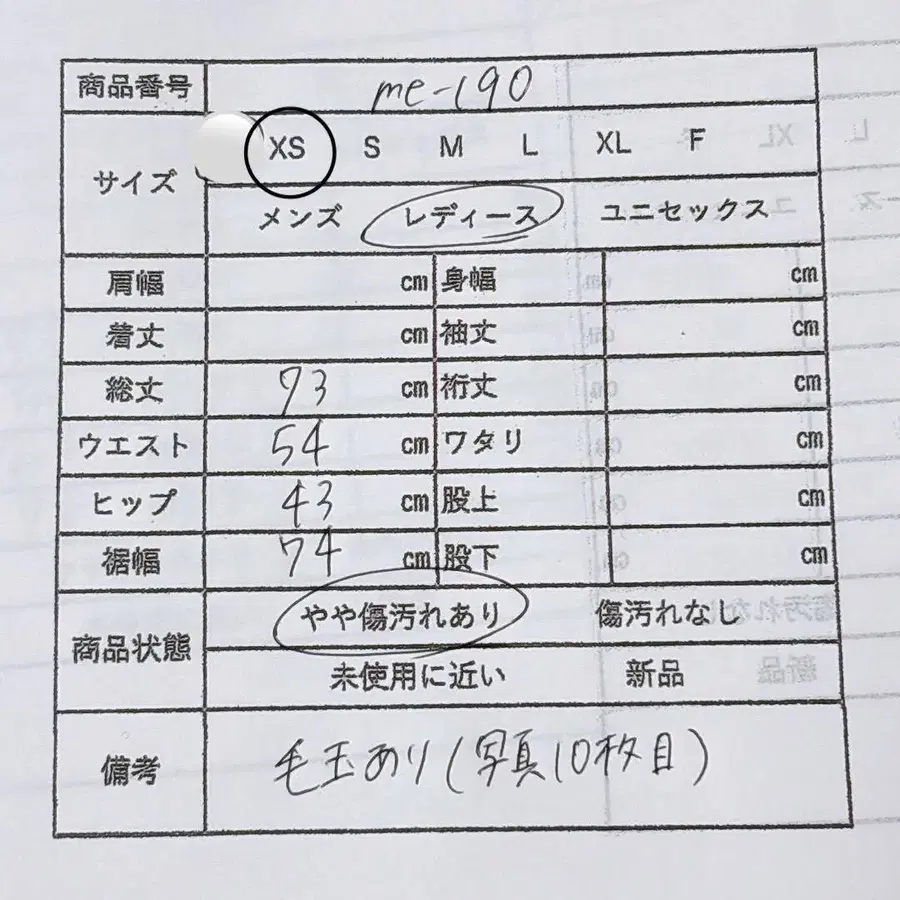 商品番号 me-190
サイズ XS S M L XL F
メンズ レディース ユニセックス
肩幅 cm 身幅 cm
着丈 cm 袖丈 cm
総丈 93 cm 裄丈 cm
ウエスト 54 cm ワタリ cm
ヒップ 43 cm 股上 cm
裾幅 74 cm 股下 cm
商品状態 やや傷汚れあり 傷汚れなし
未使用に近い 新品
備考 毛玉あり(写真10枚目)